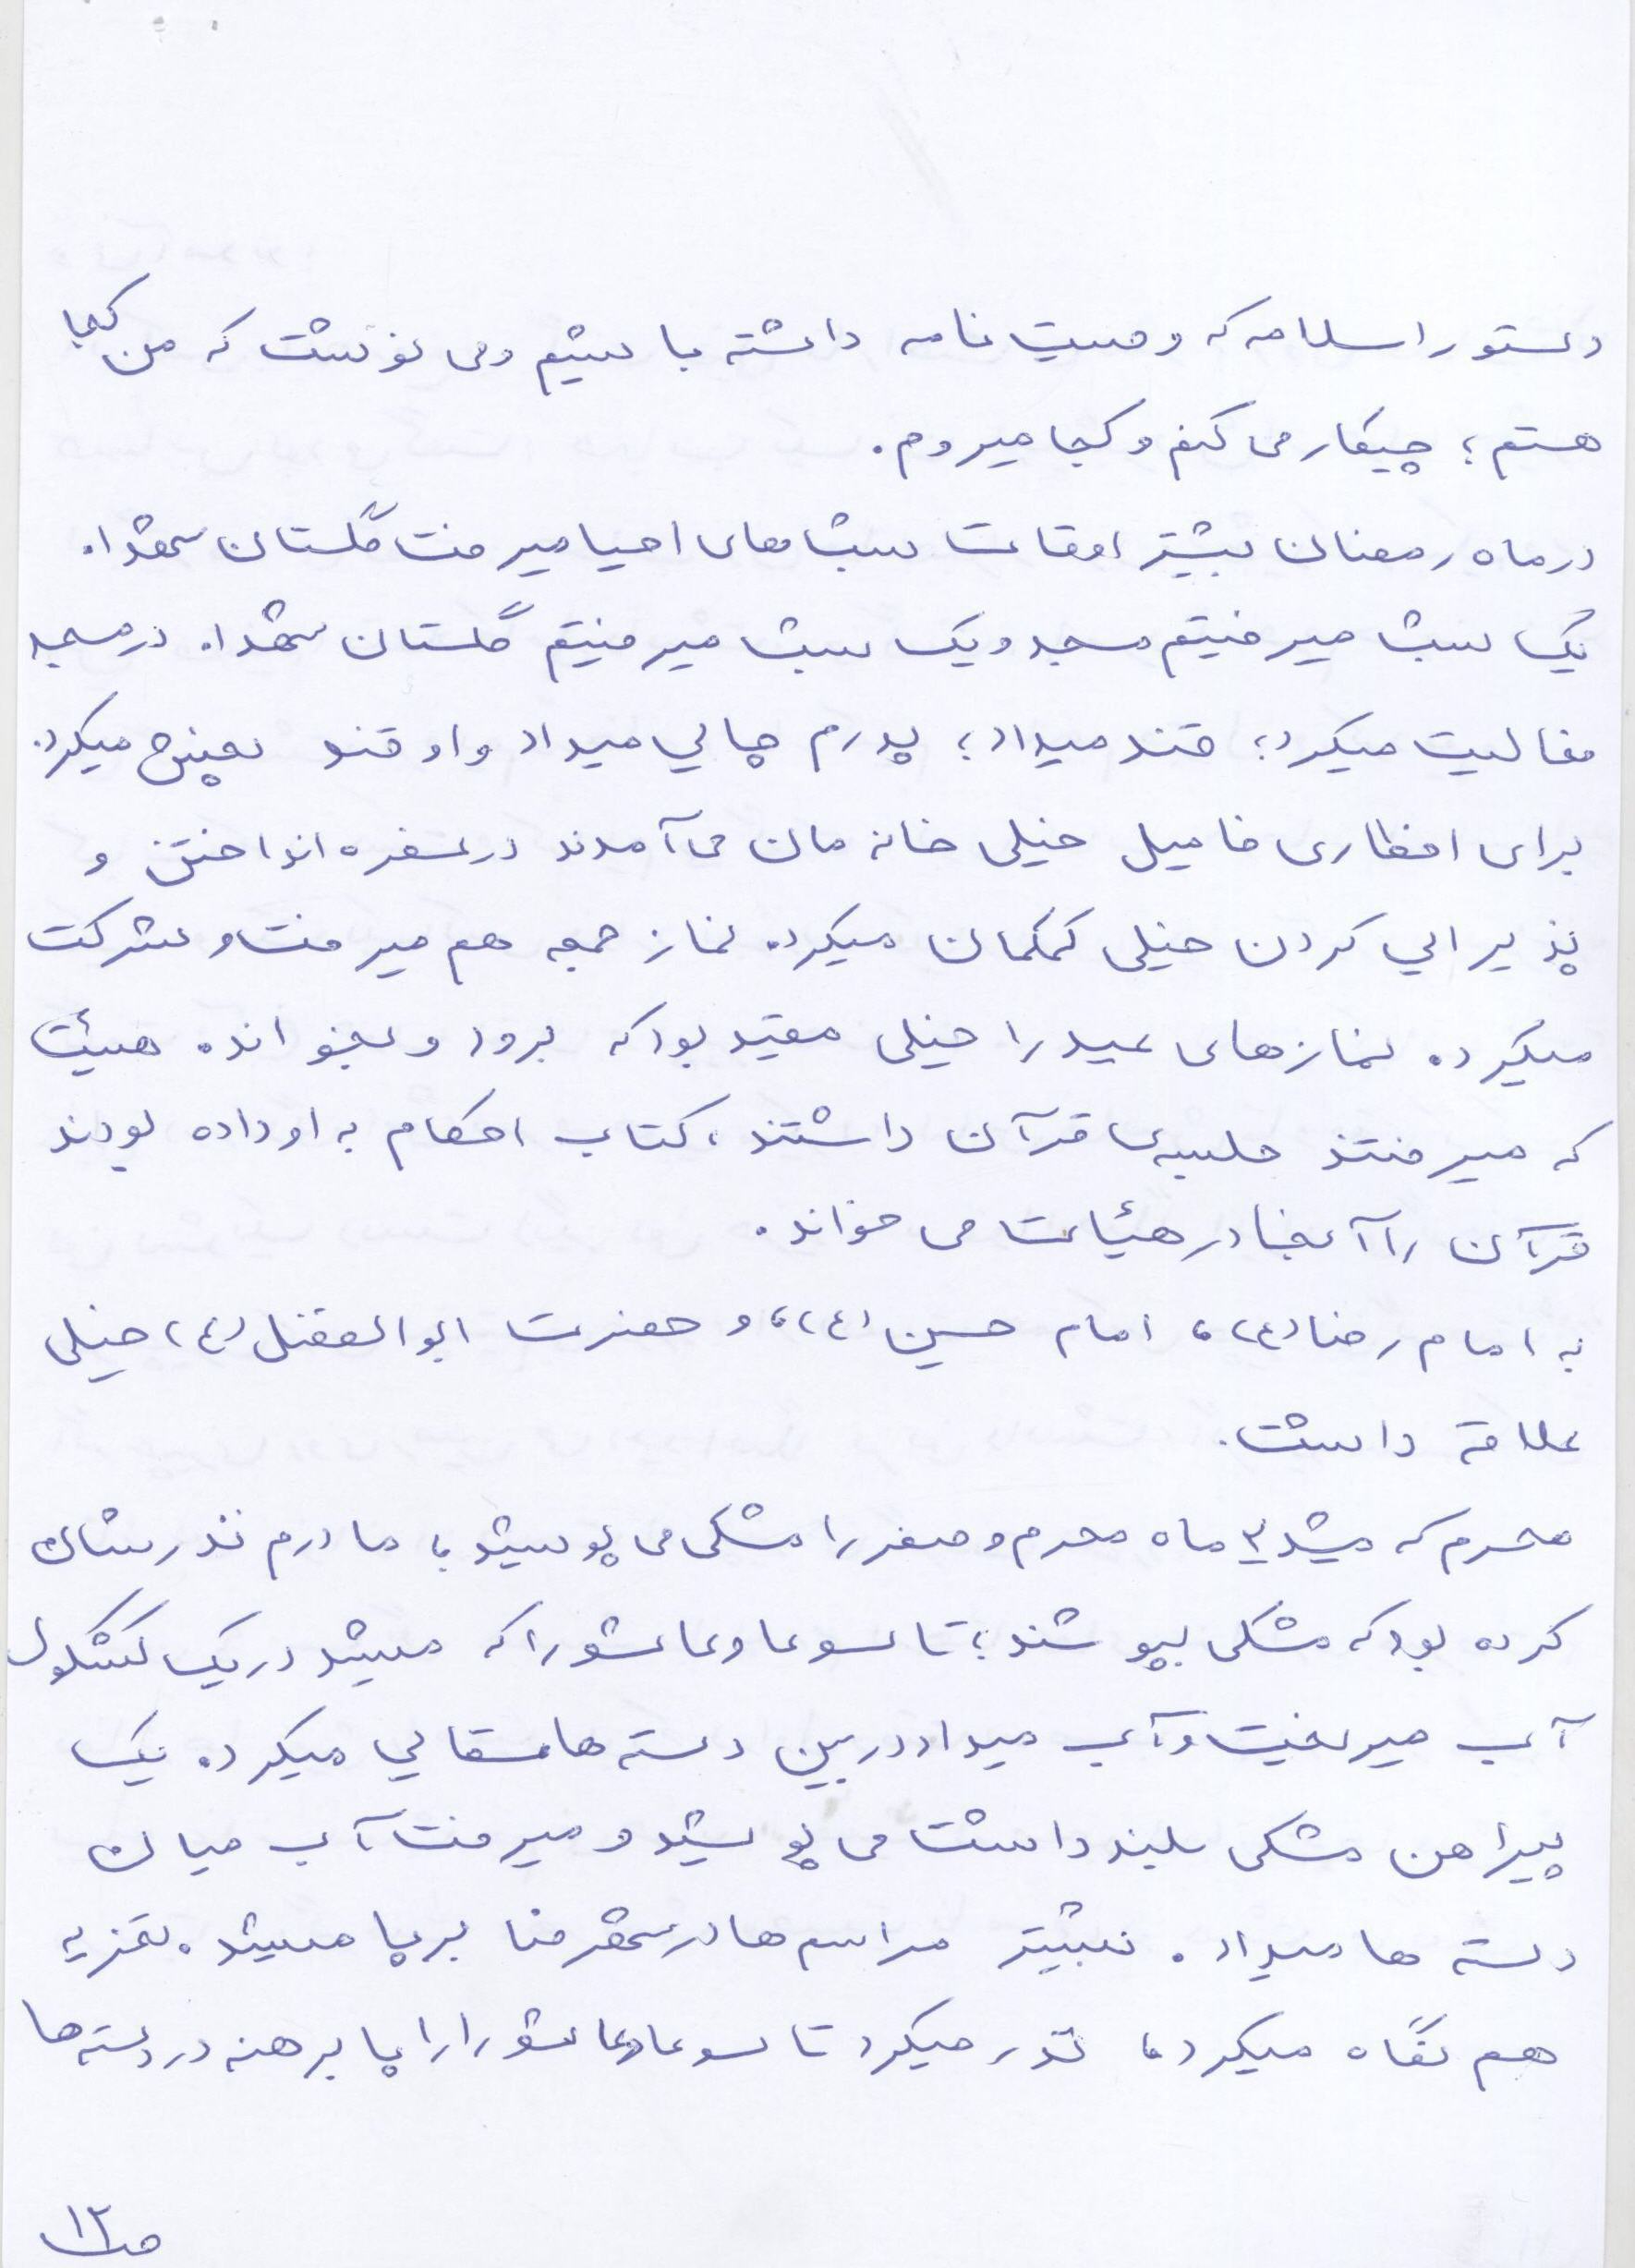 دستور اسلامه که وصیت نامه داشته باشیم ومی نوشت که من کجا
هستم؛ چیکار می کنم و کجا میروم.
در ماه رمضان بیشتر اوقات شب های احیا میرفت گلستان شهدا.
یک شب میرفتیم مسجد و یک شب میرفتیم گلستان شهدا. در مسجد
فعالیت میکرد؛ قند میداد؛ پدرم چایی میداد و او قند پخش میکرد.
برای افطاری فامیل خیلی خانه مان می آمدند در سفره انداختن و
پذیرایی کردن خیلی کمکمان میکرد. نماز جمعه هم میرفت و شرکت
میکرد. نمازهای عید را خیلی مقید بود که برود و بخواند. هیئت
که میرفتند جلسه ی قرآن داشتند، کتاب احکام به او داده بودند
قرآن را آنجا در هیئات می خواند.
به امام رضا (ع)، امام حسین (ع)، و حضرت ابوالفضل (ع) خیلی
علاقه داشت.
محرم که میشد ۲ ماه محرم و صفر را مشکی می پوشید، مادرم نذرشان
کرده بود که مشکی بپوشند؛ تاسوعا و عاشورا که میشد در یک کشکول
آب میریخت و آب میداد در بین دسته ها سقایی میکرد. یک
پیراهن مشکی بلند داشت می پوشید و میرفت آب میان
دسته ها میداد. بیشتر مراسم ها در شهرضا برپا میشد. تعزیه
هم نگاه میکرد، نذر میکرد تاسوعا و عاشورا را پا برهنه در دسته ها
ص۱۲